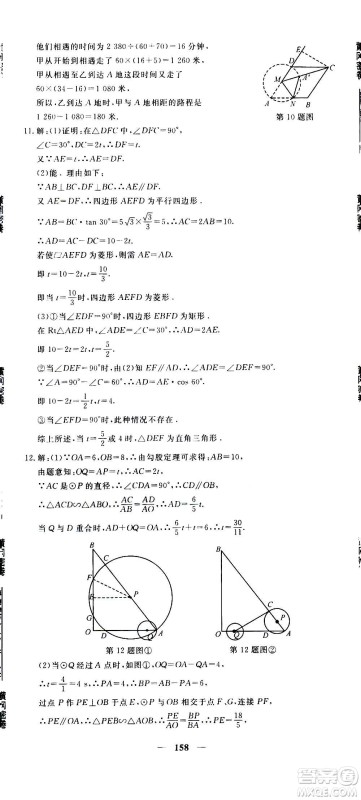 他们相遇的时间为 2 380÷(60+70)=16分钟,
甲从开始到相遇走了 60×(16+5)=1 260 米,
甲从相遇到乙到达 A 地走的路程为
60×(34-16)=1 080 米.
所以,乙到达 A 地时,甲与 A 地相距的路程为
1 260-1 080=180 米.
第 10 题图
11.解:(1)证明:在△DFC 中,∠DFC=90°,
∠C=30°,DC=4t,∴DF=2t.
又∵AE=2t,∴AE=DF.
(2)能. 理由如下:
∵AB⊥BC,DF⊥BC,∴AE∥DF.
又 AE=DF,∴四边形 AEFD 为平行四边形.
∵AB=BC·tan 30°=5√3×√3/3=5,∴AC=2AB=10.
∴AD=AC-DC=10-4t.
若使▱AEFD 为菱形,则需 AE=AD.
即 t=10-2t,t=10/3.
即当 t=10/3时,四边形 AEFD 为菱形.
(3)①当∠EDF=90°时,四边形 EBFD 为矩形.
在 Rt△AED 中,∠ADE=∠C=30°,∴AD=2AE.
即 10-2t=2t,t=5/2.
②当∠DEF=90°时,由(2)知 EF∥AD,∴∠ADE=∠DEF=90°.
∵∠A=90°-∠C=60°,∴AD=AE·cos 60°.
即 10-2t=1/2t,t=4.
③当∠EFD=90°时,此种情况不存在.
综上所述,当 t=5/2或 4 时,△DEF 为直角三角形.
12.解:(1)∵OA=6,OB=8,∴由勾股定理可求得:AB=10.
由题意知:OQ=AP=t,∴AC=2t.
∵AC 是⊙P 的直径,∴∠CDA=90°,∴CD∥OB.
∴△ACD∽△ABO,∴AC/AB=AD/AO,∴AD=6/5t.
当 Q 与 D 重合时,AD+OQ=OA,∴6/5t+t=6,∴t=30/11.
第 12 题图①
第 12 题图②
(2)当⊙Q 经过 A 点时,如图①,OQ=OA-QA=4,
∴t=4/1=4 s,∴PA=4,∴BP=AB-PA=6.
过点 P 作 PE⊥OB 于点 E,⊙P 与 OB 相交于点 F、G,连接 PF,
∴PE∥OA,∴△PEB∽△AOB,∴PE/AO=BP/BA,∴PE=18/5.
158